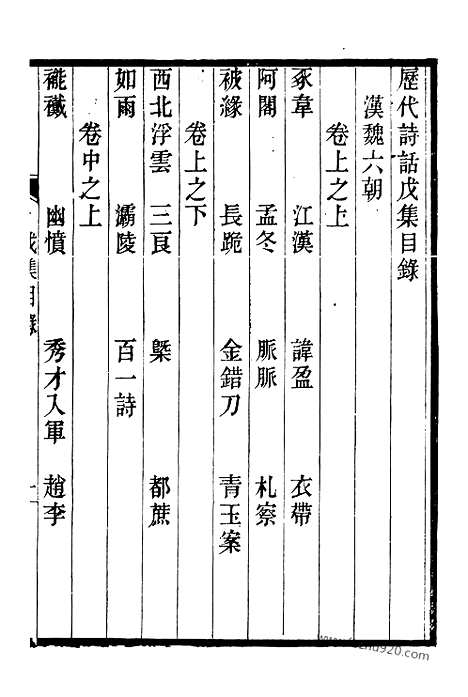 歷代詩話戊集目錄
漢魏六朝
卷上之上
豕韋 江漢 諱盈 衣帶
阿閣 孟冬 脈脈 札察
被緣 長跪 金錯刀 青玉案
卷上之下
西北浮雲 三良 槩 都蔗
如雨 灞陵 百一詩
卷中之上
褦襶 幽憤 秀才入軍 趙李